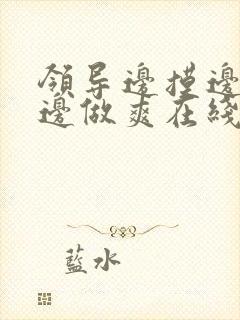 领导邊摸邊
邊做爽在綫
藍水